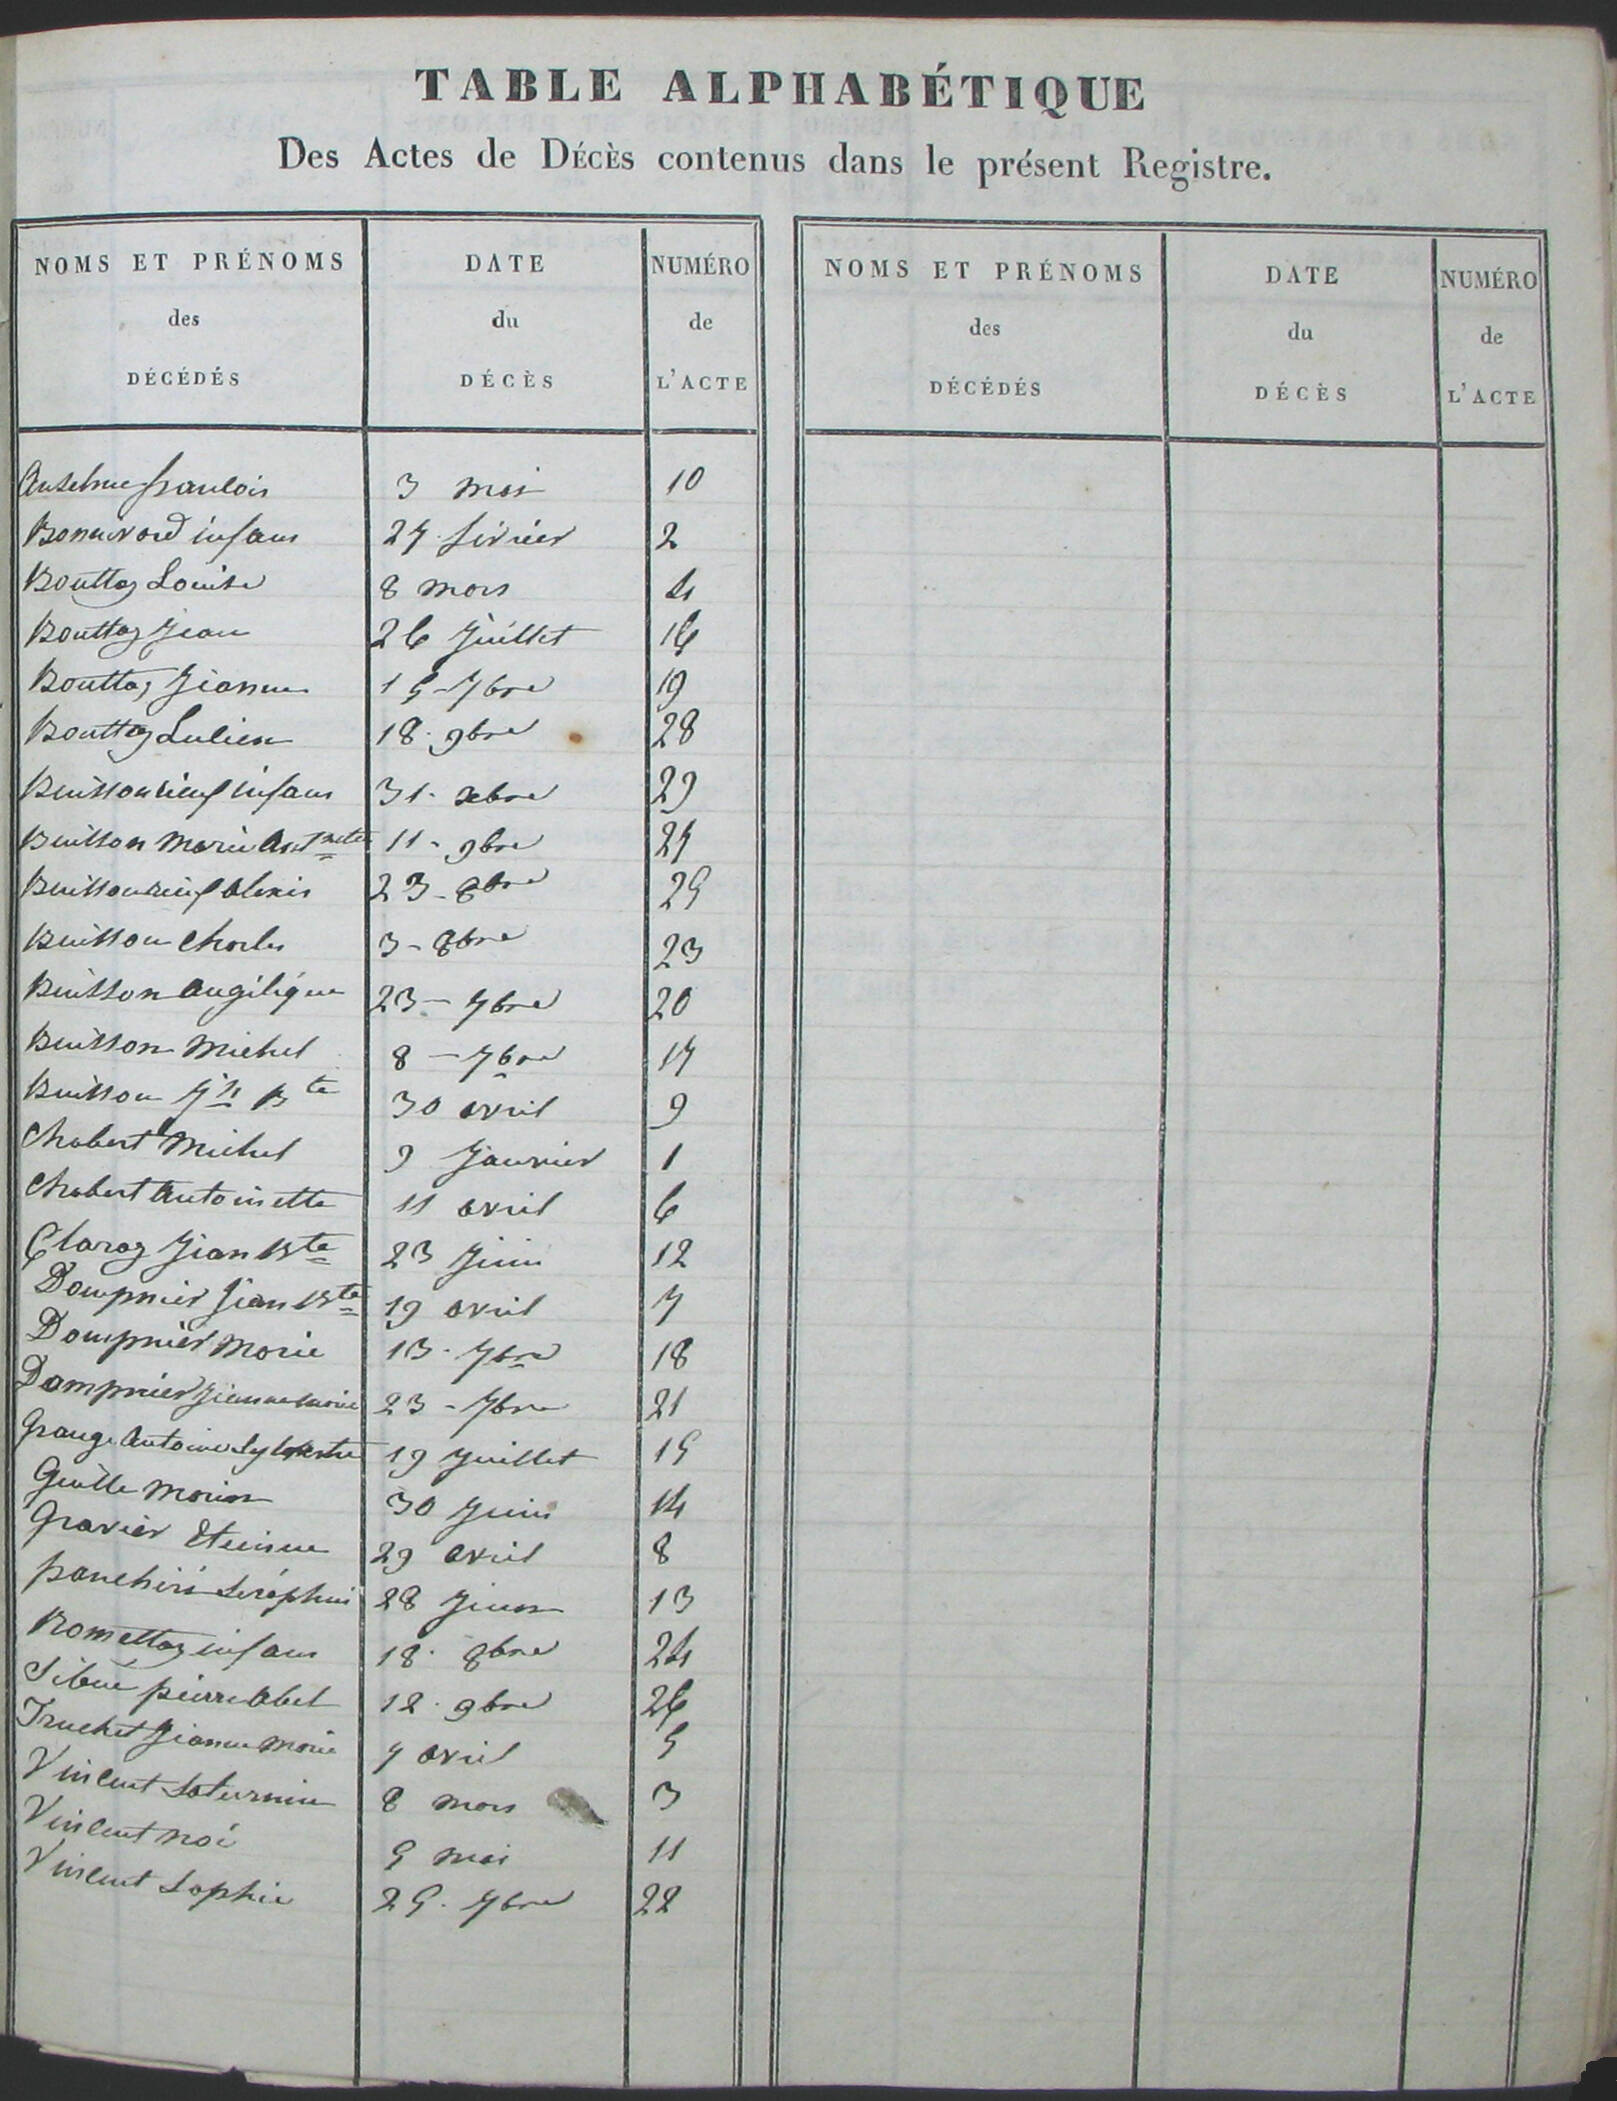 TABLE ALPHABÉTIQUE
Des Actes de DÉCÈS contenus dans le présent Registre.
NOMS ET PRÉNOMS des DÉCÉDÉS | DATE du DÉCÈS | NUMÉRO de L'ACTE | NOMS ET PRÉNOMS des DÉCÉDÉS | DATE du DÉCÈS | NUMÉRO de L'ACTE
Anselme françois 3 mai 10
Bonnivard enfans 27 février 2
Bouttaz Louise 8 mars 4
Bouttaz Jean 26 Juillet 16
Bouttaz Jeanne 15 - 7bre 19
Bouttaz Julien 18 - 9bre 28
Buissonrieuf enfans 31 - xbre 29
Buisson Marie Antnette 11 - 9bre 27
Buissonrieuf Alexis 23 - 8bre 25
Buisson Charles 3 - 8bre 23
Buisson Angélique 23 - 7bre 20
Buisson Michel 8 - 7bre 17
Buisson Jn Bte 30 avril 9
Chabert Michel 9 Janvier 1
Chabert Antoinette 11 avril 6
Claraz Jean Bte 23 Juin 12
Dompnier Jean Bte 19 avril 7
Dompnier Marie 13 - 7bre 18
Dompnier Jeanne Marie 23 - 7bre 21
Grange Antoine Sylvestre 19 Juillet 15
Guille 30 Juin 14
Gravier Etienne 29 avril 8
Séraphin 28 Juin 13
Romettaz enfans 18 - 8bre 24
Sibué pierre Abel 12 - 9bre 26
Truchet Jeanne Marie 7 avril 5
Vincent Saturnin 8 mars 3
Vincent Noé 5 mai 11
Vincent Sophie 25 - 7bre 22